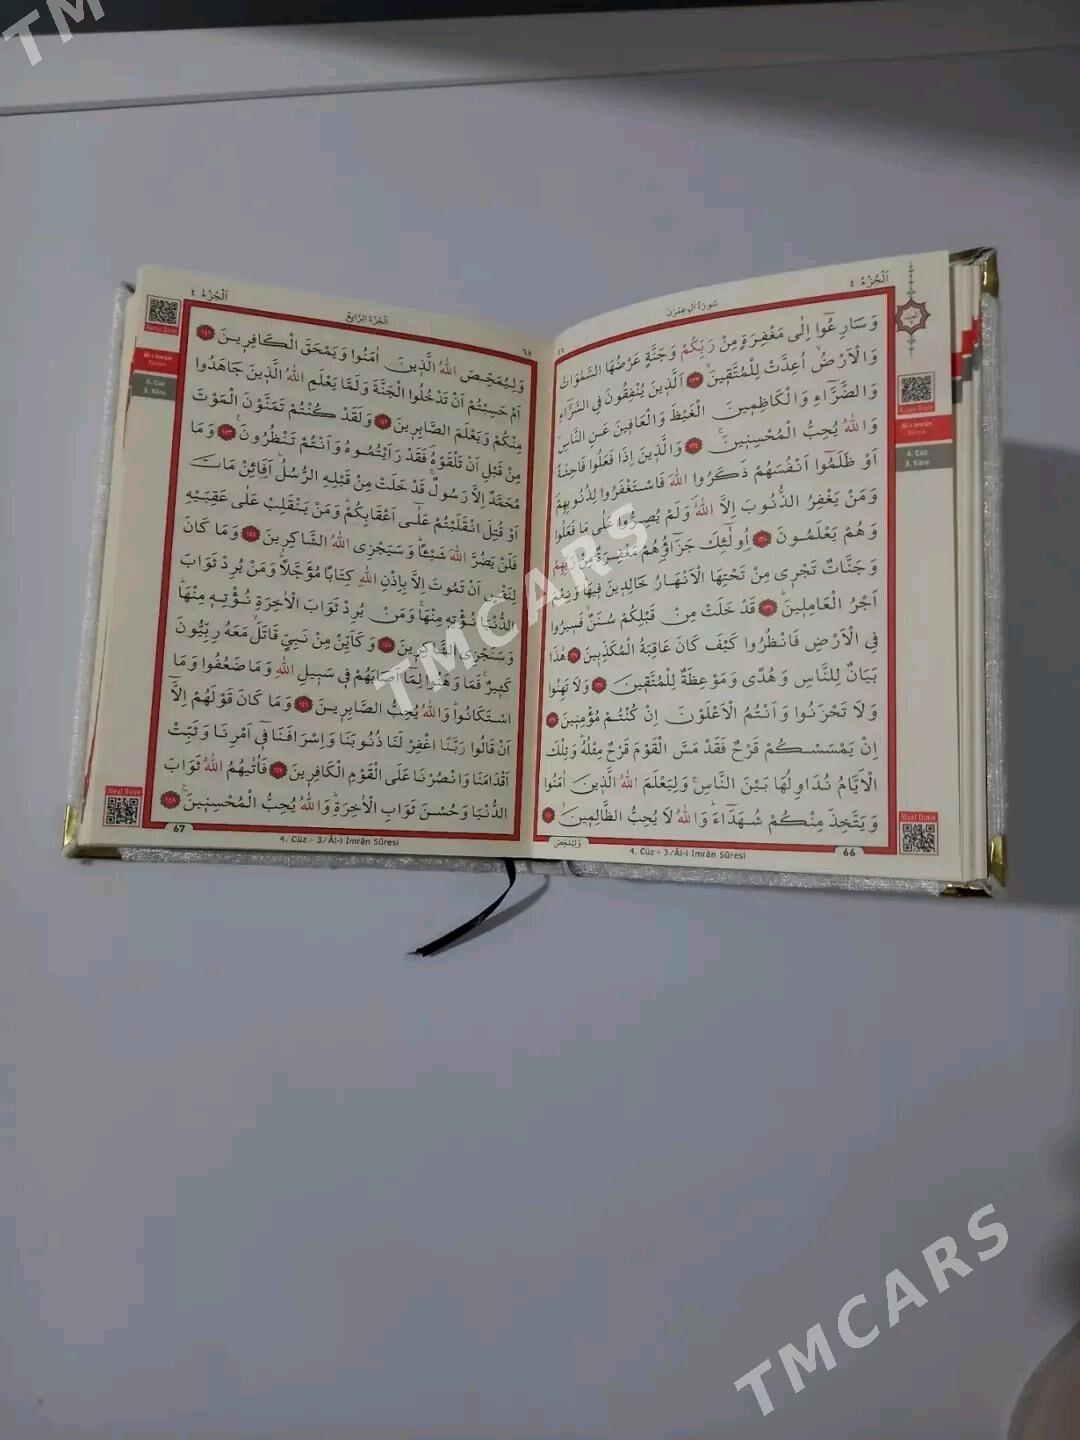 TMCARS
اَلْجُزْءُ ٤
سُورَةُ اٰلِ عِمْرٰنَ
٦٦
وَسَارِعُٓوا اِلٰى مَغْفِرَةٍ مِنْ رَبِّكُمْ وَجَنَّةٍ عَرْضُهَا السَّمٰوَاتُ
وَالْاَرْضُۙ اُعِدَّتْ لِلْمُتَّق۪ينَۙ ١٣٣ اَلَّذ۪ينَ يُنْفِقُونَ فِي السَّرَّٓاءِ
وَالضَّرَّٓاءِ وَالْكَاظِم۪ينَ الْغَيْظَ وَالْعَاف۪ينَ عَنِ النَّاسِۜ
وَاللّٰهُ يُحِبُّ الْمُحْسِن۪ينَۚ ١٣٤ وَالَّذ۪ينَ اِذَا فَعَلُوا فَاحِشَةً
اَوْ ظَلَمُٓوا اَنْفُسَهُمْ ذَكَرُوا اللّٰهَ فَاسْتَغْفَرُوا لِذُنُوبِهِمْۖ
وَمَنْ يَغْفِرُ الذُّنُوبَ اِلَّا اللّٰهُۖ وَلَمْ يُصِرُّوا عَلٰى مَا فَعَلُوا
وَهُمْ يَعْلَمُونَ ١٣٥ اُو۬لٰٓئِكَ جَزَٓاؤُ۬هُمْ مَغْفِرَةٌ مِنْ رَبِّهِمْ
وَجَنَّاتٌ تَجْر۪ي مِنْ تَحْتِهَا الْاَنْهَارُ خَالِد۪ينَ ف۪يهَاۜ وَنِعْمَ
اَجْرُ الْعَامِل۪ينَۜ ١٣٦ قَدْ خَلَتْ مِنْ قَبْلِكُمْ سُنَنٌۙ فَس۪يرُوا
فِي الْاَرْضِ فَانْظُرُوا كَيْفَ كَانَ عَاقِبَةُ الْمُكَذِّب۪ينَ ١٣٧ هٰذَا
بَيَانٌ لِلنَّاسِ وَهُدًى وَمَوْعِظَةٌ لِلْمُتَّق۪ينَ ١٣٨ وَلَا تَهِنُوا
وَلَا تَحْزَنُوا وَاَنْتُمُ الْاَعْلَوْنَ اِنْ كُنْتُمْ مُؤْمِن۪ينَ ١٣٩
اِنْ يَمْسَسْكُمْ قَرْحٌ فَقَدْ مَسَّ الْقَوْمَ قَرْحٌ مِثْلُهُۜ وَتِلْكَ
الْاَيَّامُ نُدَاوِلُهَا بَيْنَ النَّاسِۚ وَلِيَعْلَمَ اللّٰهُ الَّذ۪ينَ اٰمَنُوا
وَيَتَّخِذَ مِنْكُمْ شُهَدَٓاءَۜ وَاللّٰهُ لَا يُحِبُّ الظَّالِم۪ينَۙ ١٤٠
وَلِيُمَحِّصَ
4. Cüz - 3/Âl-i İmrân Sûresi
66
Âl-i İmrân
Sûresi
4. Cüz
3. Sûre
Meal Dinle
اَلْجُزْءُ ٤
اَلْجُزْءُ الرَّابِعُ
٦٧
وَلِيُمَحِّصَ اللّٰهُ الَّذ۪ينَ اٰمَنُوا وَيَمْحَقَ الْكَافِر۪ينَ ١٤١
اَمْ حَسِبْتُمْ اَنْ تَدْخُلُوا الْجَنَّةَ وَلَمَّا يَعْلَمِ اللّٰهُ الَّذ۪ينَ جَاهَدُوا
مِنْكُمْ وَيَعْلَمَ الصَّابِر۪ينَ ١٤٢ وَلَقَدْ كُنْتُمْ تَمَنَّوْنَ الْمَوْتَ
مِنْ قَبْلِ اَنْ تَلْقَوْهُۖ فَقَدْ رَاَيْتُمُوهُ وَاَنْتُمْ تَنْظُرُونَ۟ ١٤٣ وَمَا
مُحَمَّدٌ اِلَّا رَسُولٌۚ قَدْ خَلَتْ مِنْ قَبْلِهِ الرُّسُلُۜ اَفَا۬ئِنْ مَاتَ
اَوْ قُتِلَ انْقَلَبْتُمْ عَلٰٓى اَعْقَابِكُمْۜ وَمَنْ يَنْقَلِبْ عَلٰى عَقِبَيْهِ
فَلَنْ يَضُرَّ اللّٰهَ شَيْـًٔاۜ وَسَيَجْزِي اللّٰهُ الشَّاكِر۪ينَ ١٤٤ وَمَا كَانَ
لِنَفْسٍ اَنْ تَمُوتَ اِلَّا بِاِذْنِ اللّٰهِ كِتَابًا مُؤَجَّلًاۜ وَمَنْ يُرِدْ ثَوَابَ
الدُّنْيَا نُؤْتِه۪ مِنْهَاۚ وَمَنْ يُرِدْ ثَوَابَ الْاٰخِرَةِ نُؤْتِه۪ مِنْهَاۜ
وَسَنَجْزِي الشَّاكِر۪ينَ ١٤٥ وَكَاَيِّنْ مِنْ نَبِيٍّ قَاتَلَۙ مَعَهُ رِبِّيُّونَ
كَث۪يرٌۚ فَمَا وَهَنُوا لِمَٓا اَصَابَهُمْ ف۪ي سَب۪يلِ اللّٰهِ وَمَا ضَعُفُوا وَمَا
اسْتَكَانُواۜ وَاللّٰهُ يُحِبُّ الصَّابِر۪ينَ ١٤٦ وَمَا كَانَ قَوْلَهُمْ اِلَّٓا
اَنْ قَالُوا رَبَّنَا اغْفِرْ لَنَا ذُنُوبَنَا وَاِسْرَافَنَا ف۪ٓي اَمْرِنَا وَثَبِّتْ
اَقْدَامَنَا وَانْصُرْنَا عَلَى الْقَوْمِ الْكَافِر۪ينَ ١٤٧ فَاٰتٰيهُمُ اللّٰهُ ثَوَابَ
الدُّنْيَا وَحُسْنَ ثَوَابِ الْاٰخِرَةِۜ وَاللّٰهُ يُحِبُّ الْمُحْسِن۪ينَ۟ ١٤٨
67
4. Cüz - 3/Âl-i İmrân Sûresi
Âl-i İmrân
Sûresi
4. Cüz
3. Sûre
Meal Dinle
TMCARS
TMCARS